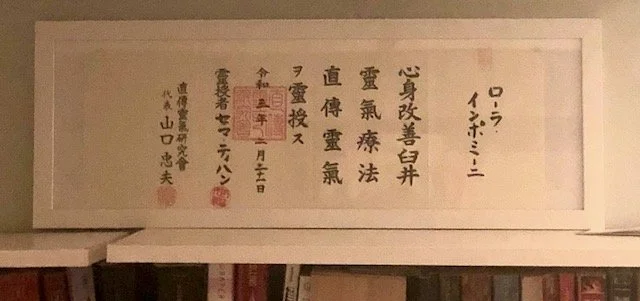 ローラ
インポミーニ
心身改善臼井
靈氣療法
直傳靈氣
ヲ靈授ス
令和三年二月二十一日
靈授者 セマ ティハン
直傳靈氣研究會
代表 山口忠夫